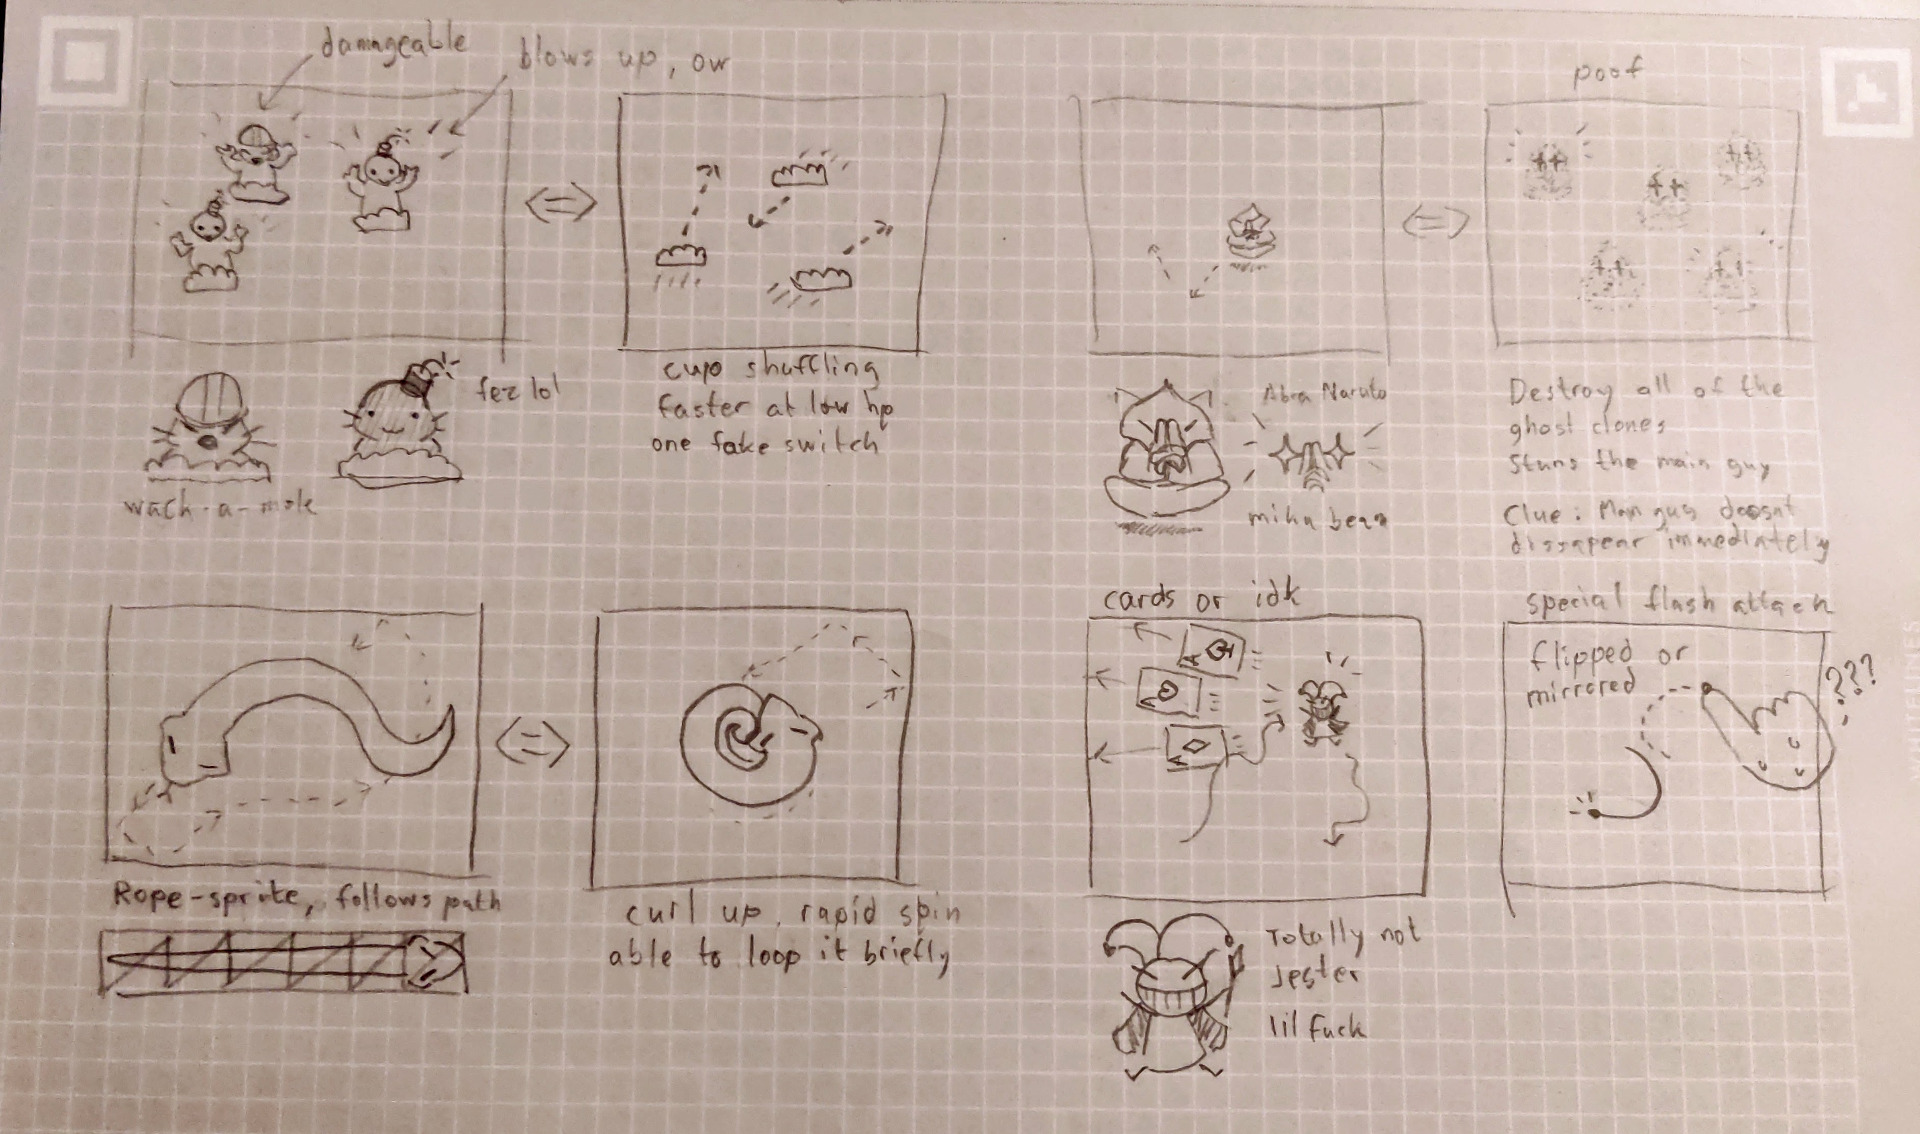 damageable
blows up, ow
fez lol
wach-a-mole
cup shuffling
faster at low hp
one fake switch
poof
Abra Naruto
Destroy all of the
ghost clones
Stuns the main guy
Clue: Main guy doesnt
dissapear immediately
Rope-sprite, follows path
curl up, rapid spin
able to loop it briefly
cards or idk
Totally not
Jester
lil fuck
special flash attack
flipped or
mirrored
???